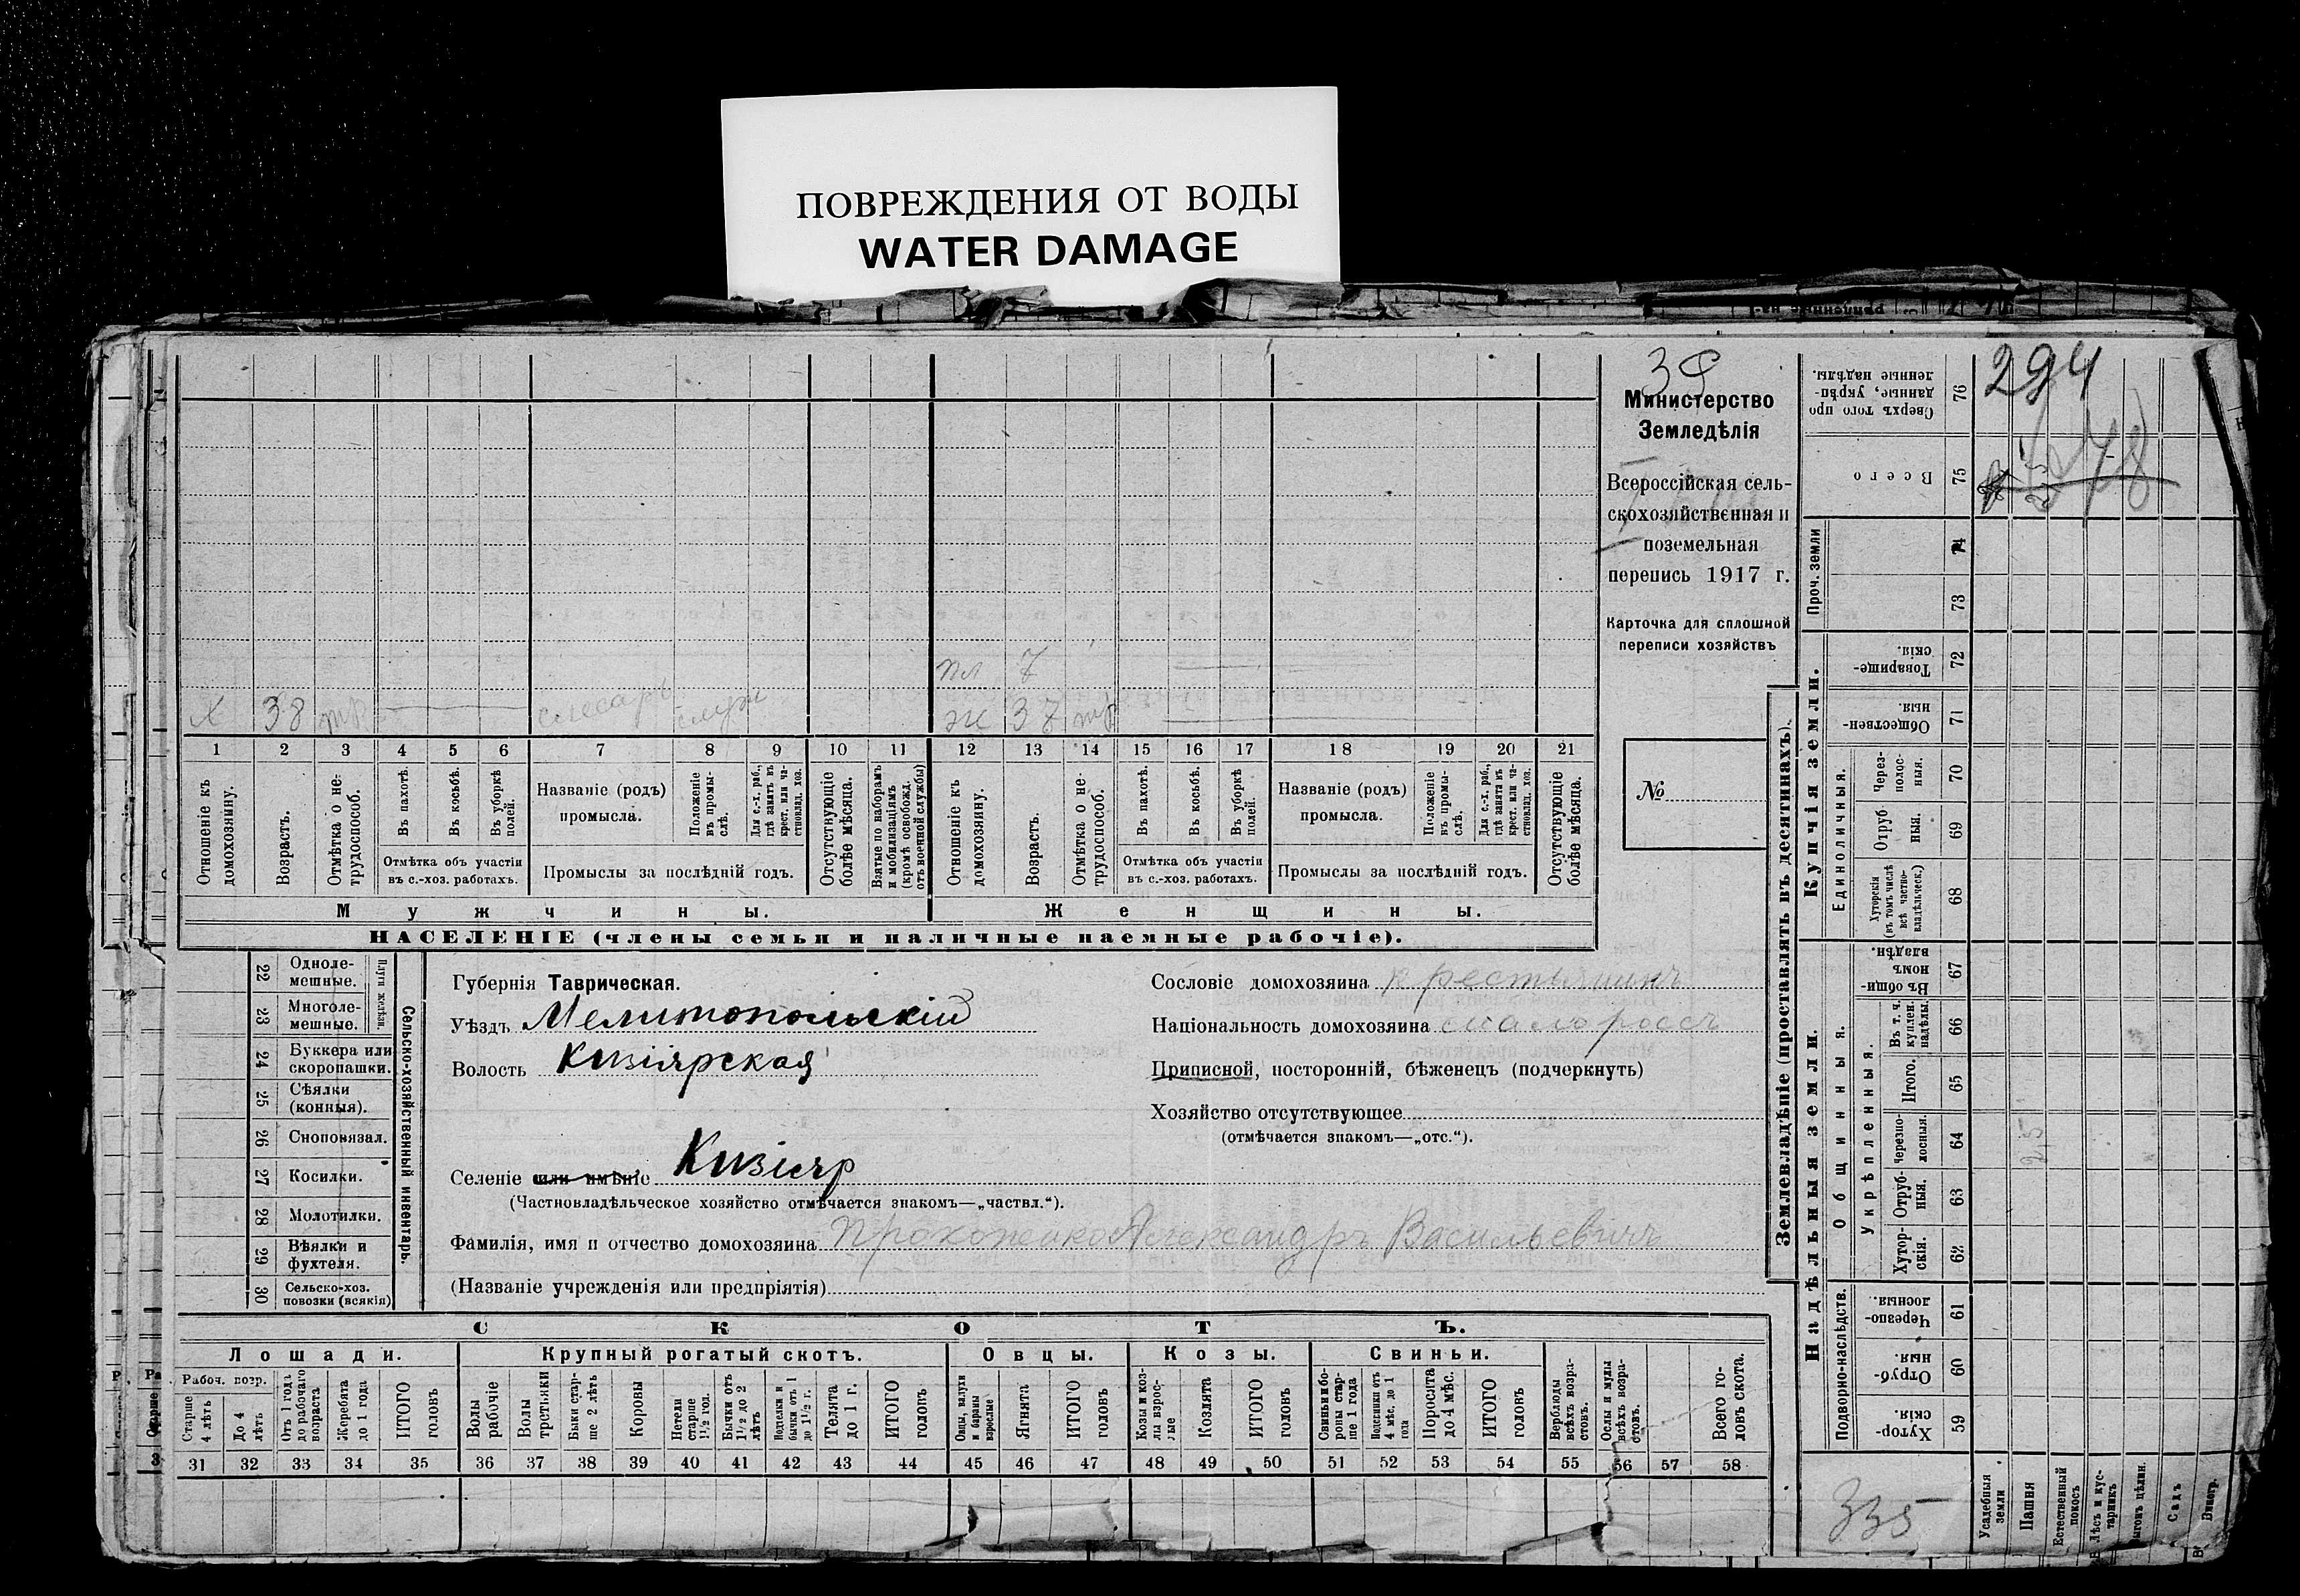 ПОВРЕЖДЕНИЯ ОТ ВОДЫ
WATER DAMAGE
39
Министерство
Земледѣлія
Всероссійская сель-
скохозяйственная и
поземельная
перепись 1917 г.
Карточка для сплошной
переписи хозяйствъ
№
пл 7
Х 38 тр слесарь служ ж 37 тр
1 2 3 4 5 6 7 8 9 10 11 12 13 14 15 16 17 18 19 20 21
Отношеніе къ домохозяину.
Возрастъ.
Отмѣтка о не-трудоспособ.
Въ пахотѣ.
Въ косьбѣ.
Въ уборкѣ полей.
Отмѣтка объ участіи
въ с.-хоз. работахъ.
Названіе (родъ)
промысла.
Положеніе въ промы-слѣ.
Для с.-х. раб., гдѣ занятъ въ крест. или ча-стновлад. хоз.
Промыслы за послѣдній годъ.
Отсутствующіе болѣе мѣсяца.
Взятые по наборамъ и мобилизаціямъ (кромѣ освобожд. отъ военной службы)
Отношеніе къ домохозяину.
Возрастъ.
Отмѣтка о не-трудоспособ.
Въ пахотѣ.
Въ косьбѣ.
Въ уборкѣ полей.
Отмѣтка объ участіи
въ с.-хоз. работахъ.
Названіе (родъ)
промысла.
Положеніе въ промы-слѣ.
Для с.-х. раб., гдѣ занята въ крест. или ча-стновлад. хоз.
Промыслы за послѣдній годъ.
Отсутствующіе болѣе мѣсяца.
Мужчины. Женщины.
НАСЕЛЕНІЕ (члены семьи и наличные наемные рабочіе).
22 Одноле-мешные.
23 Многоле-мешные.
Плуги желѣзн.
24 Буккера или скоропашки.
25 Сѣялки (конныя).
26 Сноповязал.
27 Косилки.
28 Молотилки.
29 Вѣялки и фухтеля.
30 Сельско-хоз. повозки (всякія)
Сельско-хозяйственный инвентарь.
Губернія Таврическая.
Уѣздъ Мелитопольскій
Волость Кизіярская
Селеніе или имѣніе Кизіяр
(Частновладѣльческое хозяйство отмѣчается знакомъ—„частвл.“).
Фамилія, имя и отчество домохозяина Прокопенко Александръ Васильевичъ
(Названіе учрежденія или предпріятія)
Сословіе домохозяина крестьянинъ
Національность домохозяина малороссъ
Приписной, посторонній, бѣженецъ (подчеркнуть)
Хозяйство отсутствующее
(отмѣчается знакомъ—„отс.“).
СКОТЪ.
Лошади. Крупный рогатый скотъ. Овцы. Козы. Свиньи.
Рабоч. возр.
Старше 4 лѣтъ
До 4 лѣтъ
Отъ 1 года до рабочаго возраста
Жеребята до 1 года
ИТОГО головъ
Волы рабочіе
Волы третьяки
Быки стар-ше 2 лѣтъ
Коровы
Нетели старше 1½ год.
Бычки отъ 1½ до 2 лѣтъ
Подтелки и бычки отъ 1 до 1½ г.
Телята до 1 г.
ИТОГО головъ
Овцы, валухи и бараны взрослые
Ягнята
ИТОГО головъ
Козы и коз-лы взрос-лые
Козлята
ИТОГО головъ
Свиньи и бо-ровы стар-ше 1 года
Подсвинки отъ 4 мѣс. до 1 года
Поросята до 4 мѣс.
ИТОГО головъ
Верблюды всѣхъ возра-стовъ.
Ослы и мулы всѣхъ возра-стовъ.
Всего го-ловъ скота.
31 32 33 34 35 36 37 38 39 40 41 42 43 44 45 46 47 48 49 50 51 52 53 54 55 56 57 58
Землевладѣніе (проставлять въ десятинахъ).
Купчія земли.
Надѣльныя земли.
Сверхъ того про-данные, укрѣп-ленные надѣлы. 76
Всего 75
Проч. земли 74 73
Товарище-скія. 72
Обществен-ныя. 71
Единоличныя.
Через-полос-ныя. 70
Отруб-ныя. 69
Хуторскія (въ томъ числѣ всѣ частно-владѣльческ.) 68
Общинныя.
Въ общи-номъ владѣн. 67
Укрѣпленныя.
Въ т. ч. куплен. надѣлы. 66
Итого. 65
Черезпо-лосныя. 64
Отруб-ныя. 63
Хутор-скія. 62
Подворно-наслѣдств.
Черезпо-лосныя. 61
Отруб-ныя. 60
Хутор-скія. 59
294
78
25
335
Усадебныя земли
Пашня
Естественный покосъ
Лѣсъ и кус-тарникъ
Садъ
Виногр.